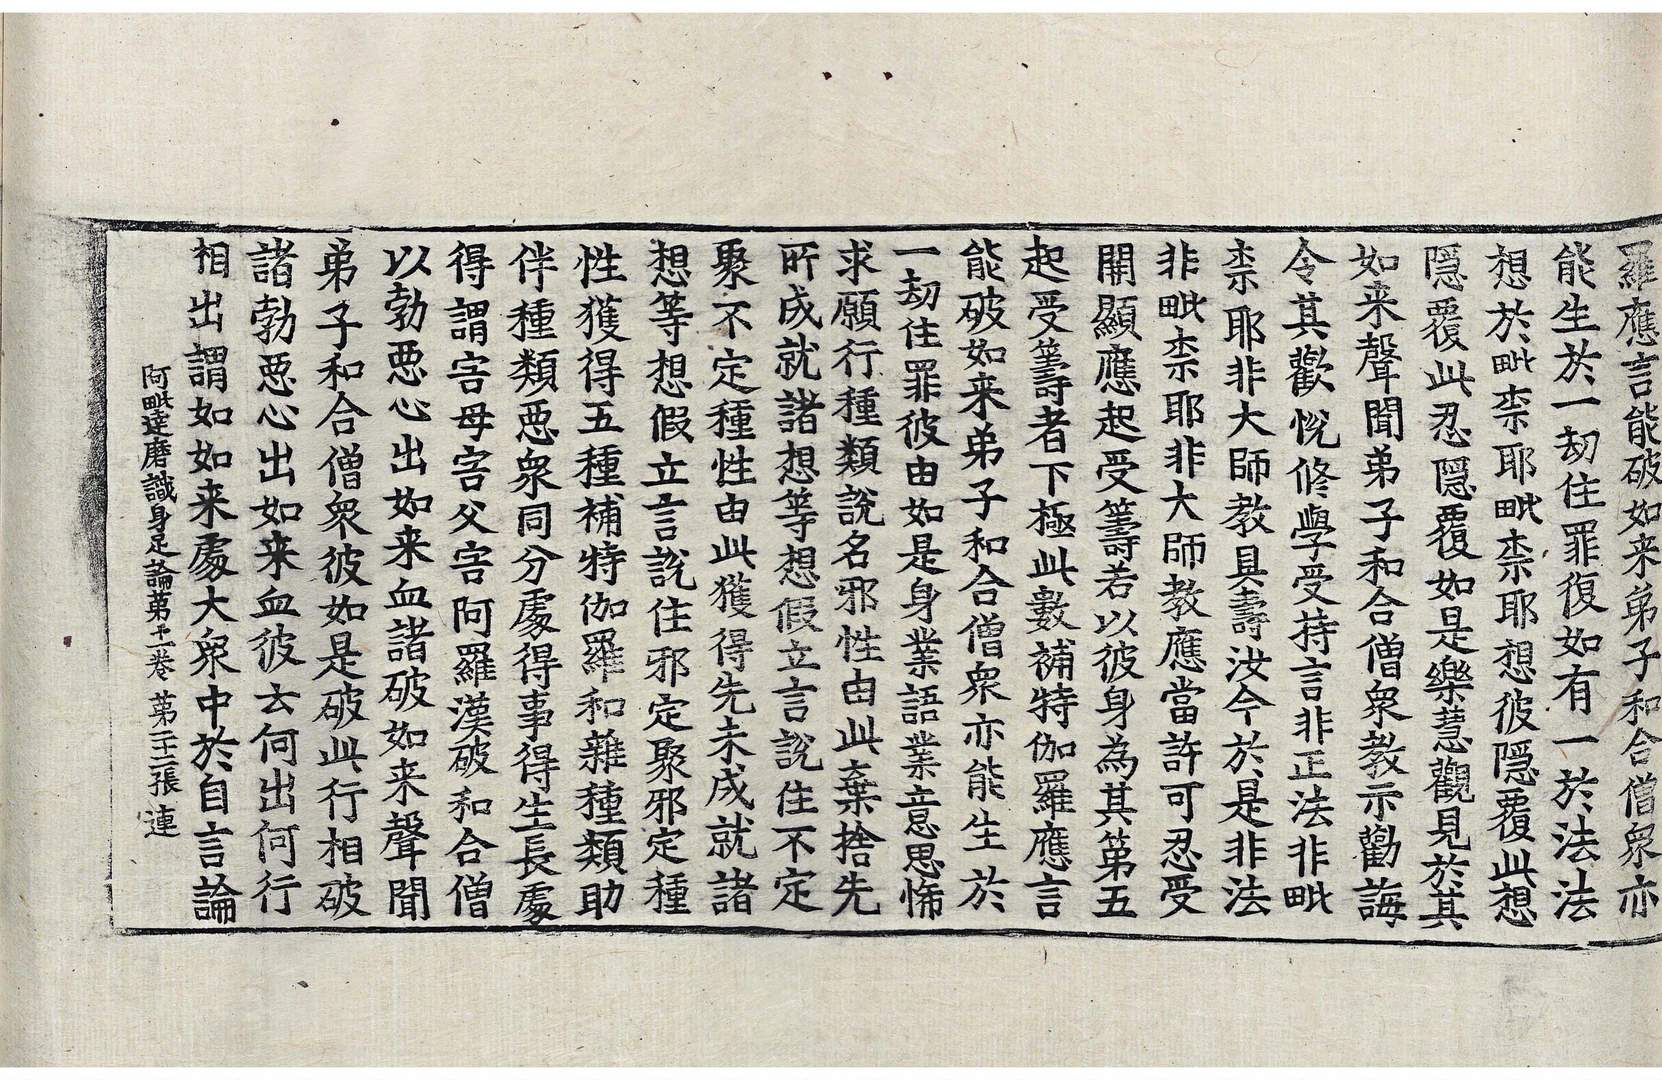 羅應言能破如来弟子和合僧衆亦
能生於一劫住罪復如有一於法法
想於毗柰耶毗柰耶想彼隱覆此想
隱覆此忍隱覆如是樂慧觀見於其
如来聲聞弟子和合僧衆教示勸誨
令其歡悅修學受持言非正法非毗
柰耶非大師教具壽汝今於是非法
非毗柰耶非大師教應當許可忍受
開顯應起受籌若以彼身為其第五
起受籌者下極此數補特伽羅應言
能破如来弟子和合僧衆亦能生於
一劫住罪彼由如是身業語業意思悕
求願行種類說名邪性由此棄捨先
所成就諸想等想假立言說住不定
聚不定種性由此獲得先未成就諸
想等想假立言說住邪定聚邪定種
性獲得五種補特伽羅和雜種類助
伴種類惡衆同分處得事得生長處
得謂害母害父害阿羅漢破和合僧
以勃惡心出如来血諸破如来聲聞
弟子和合僧衆彼如是破此行相破
諸勃惡心出如来血彼去何出何行
相出謂如如来處大衆中於自言論
阿毗達磨識身足論第十一卷 第二十二張 連